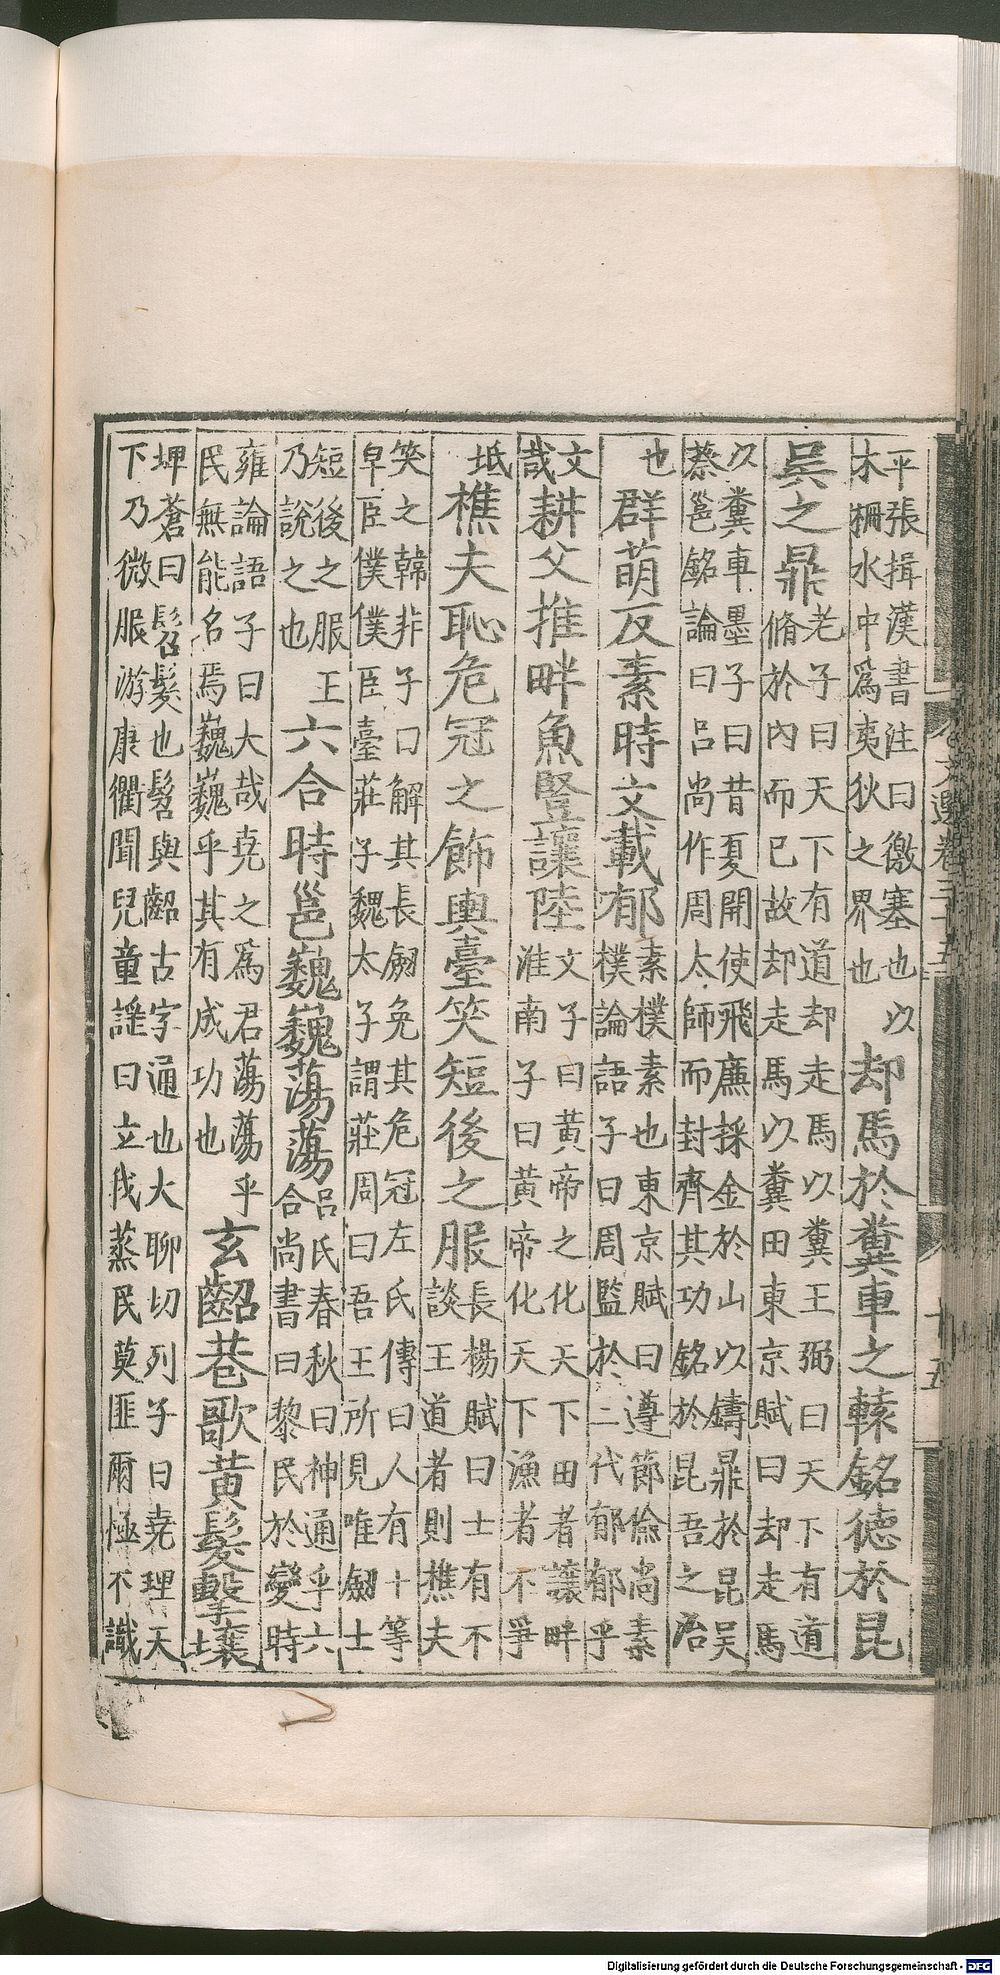 平張揖漢書注曰徼塞也以
木柵水中爲夷狄之界也
却馬於糞車之轅銘德於昆
吳之鼎
老子曰天下有道却走馬以糞王弼曰天下有道
脩於內而已故却走馬以糞田東京賦曰却走馬
以糞車墨子曰昔夏開使飛廉採金於山以鑄鼎於昆吳
蔡邕銘論曰呂尚作周太師而封齊其功銘於昆吾之冶
也
群萌反素時文載郁
素樸素也東京賦曰遵節儉尚素
樸論語子曰周監於二代郁郁乎
文
哉
耕父推畔魚豎讓陸
文子曰黃帝之化天下田者讓畔
淮南子曰黃帝化天下漁者不爭
坻
樵夫恥危冠之飾輿臺笑短後之服
長楊賦曰士有不
談王道者則樵夫
笑之韓非子曰解其長劒免其危冠左氏傳曰人有十等
皁臣僕僕臣臺莊子魏太子謂莊周曰吾王所見唯劒士
短後之服王
乃說之也
六合時邕巍巍蕩蕩
呂氏春秋曰神通乎六
合尚書曰黎民於變時
雍論語子曰大哉堯之爲君蕩蕩乎
民無能名焉巍巍乎其有成功也
玄齠巷歌黃髮擊壤
埤蒼曰髫髮也髫與齠古字通也大聊切列子曰堯理天
下乃微服游康衢聞兒童謡曰立我蒸民莫匪爾極不識
文選卷三十五
十五
Digitalisierung gefördert durch die Deutsche Forschungsgemeinschaft - DFG